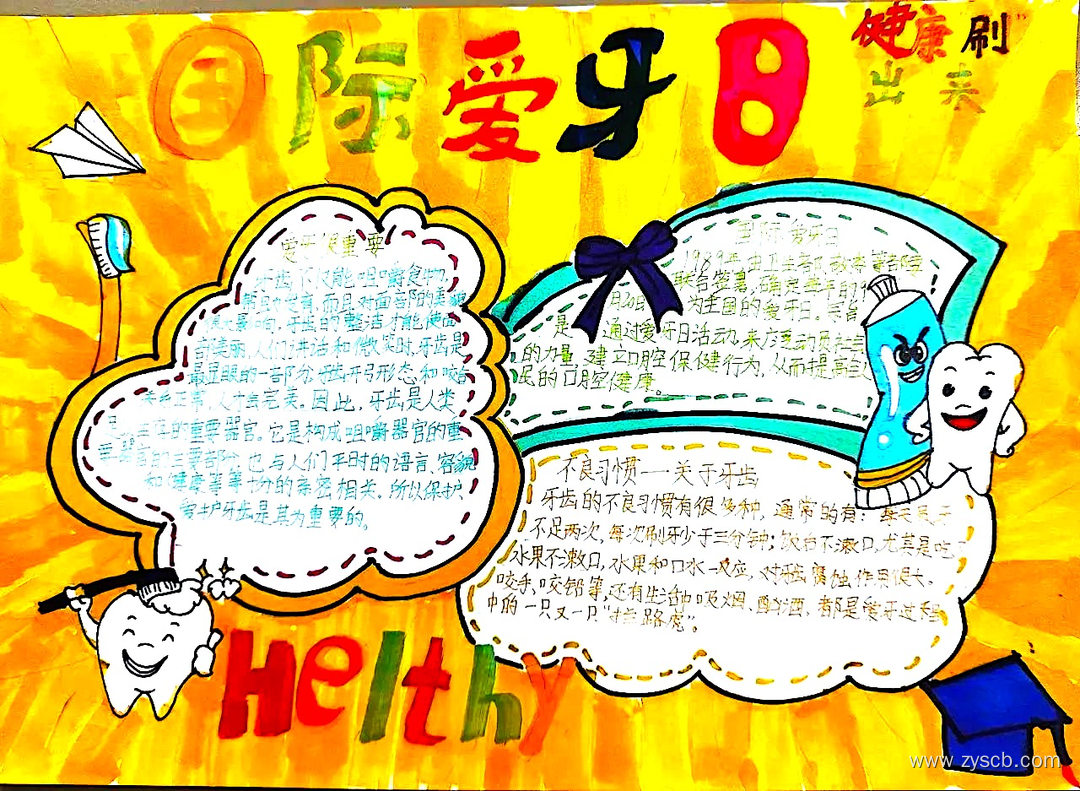 国际爱牙日
健康刷
出来
爱牙很重要
牙齿不仅能咀嚼食物,
而且对面部的美
响。牙齿的整洁才能使面
部健丽,人们讲话和微笑时,牙齿是
最显眼的一部分。牙齿形态和咬合
正常,人才会完美。因此,牙齿是人类
的重要器官。它是构成咀嚼器官的重
要部分,也与人们平时的语言、容貌
和健康等等十分的亲密相关。所以保护
牙齿是甚为重要的。
国际爱牙日
1989年,由卫生部、教委等部委
联合签署,确定每年的9
月20日为全国的爱牙日。
是通过爱牙日活动,来广泛动员社会
的力量,建立口腔保健行为,从而提高
民的口腔健康。
不良习惯——关于牙齿
牙齿的不良习惯有很多种,通常的有:每天刷牙
不足两次,每次刷牙少于三分钟;饮后不漱口,尤其是吃
水果不漱口,水果和口水一反应,对牙齿腐蚀作用很大。
咬手、咬铅笔,还有生活中吸烟、酗酒,都是爱牙过程
中的一只又一只"拦路虎"。
Helthy
www.zyscb.com